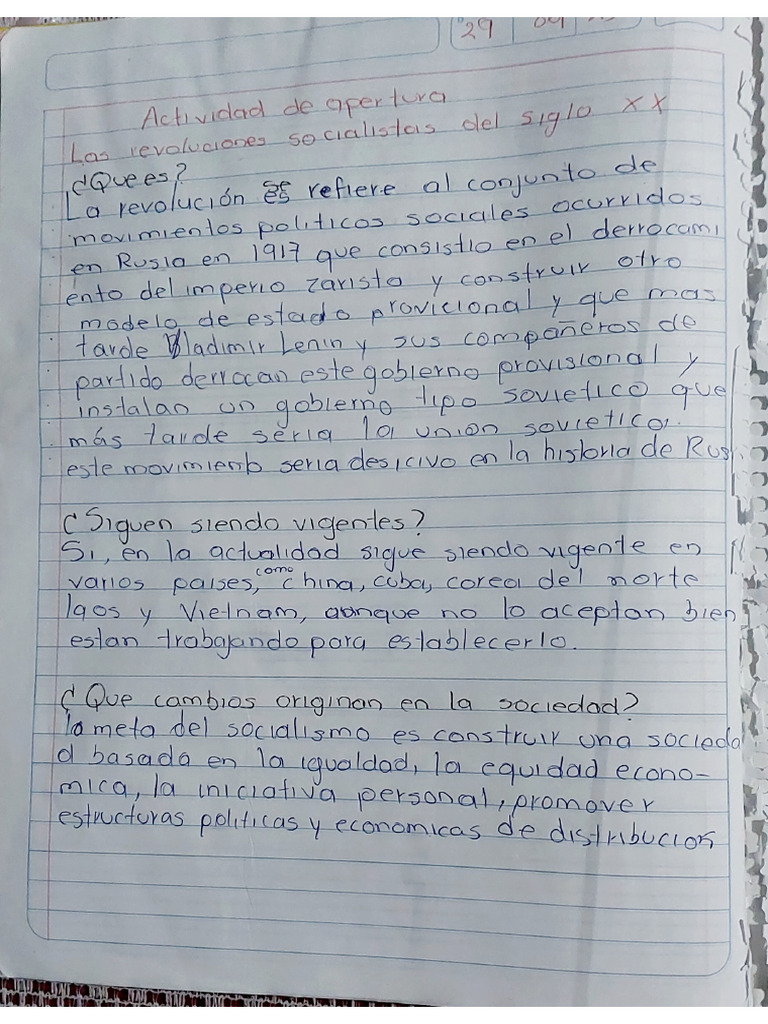 29 04
Actividad de apertura
Las revoluciones socialistas del siglo XX
¿Que es?
La revolución se refiere al conjunto de
movimientos politicos sociales ocurridos
en Rusia en 1917 que consistio en el derrocami
ento del imperio zarista y construir otro
modelo de estado provicional y que mas
tarde Vladimir Lenin y sus compañeros de
partido derrocan este gobierno provisional y
instalan un gobierno tipo sovietico que
más tarde seria la union sovietica.
este movimiento seria desicivo en la historia de Rus
¿Siguen siendo vigentes?
Si, en la actualidad sigue siendo vigente en
varios paises, como china, cuba, corea del norte
laos y Vietnam, aunque no lo aceptan bien
estan trabajando para establecerlo.
¿Que cambios originan en la sociedad?
la meta del socialismo es construir una socieda
d basada en la igualdad, la equidad econo-
mica, la iniciativa personal, promover
estructuras politicas y economicas de distribucion